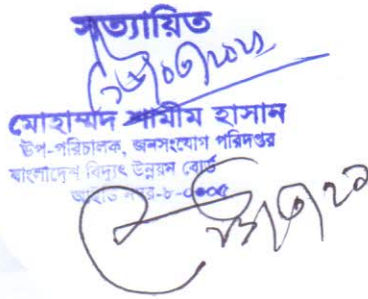 সত্যায়িত
মোহাম্মদ শামীম হাসান
উপ-পরিচালক, জনসংযোগ পরিদপ্তর
বাংলাদেশ বিদ্যুৎ উন্নয়ন বোর্ড
আইডি নম্বর-৮-০০০৫